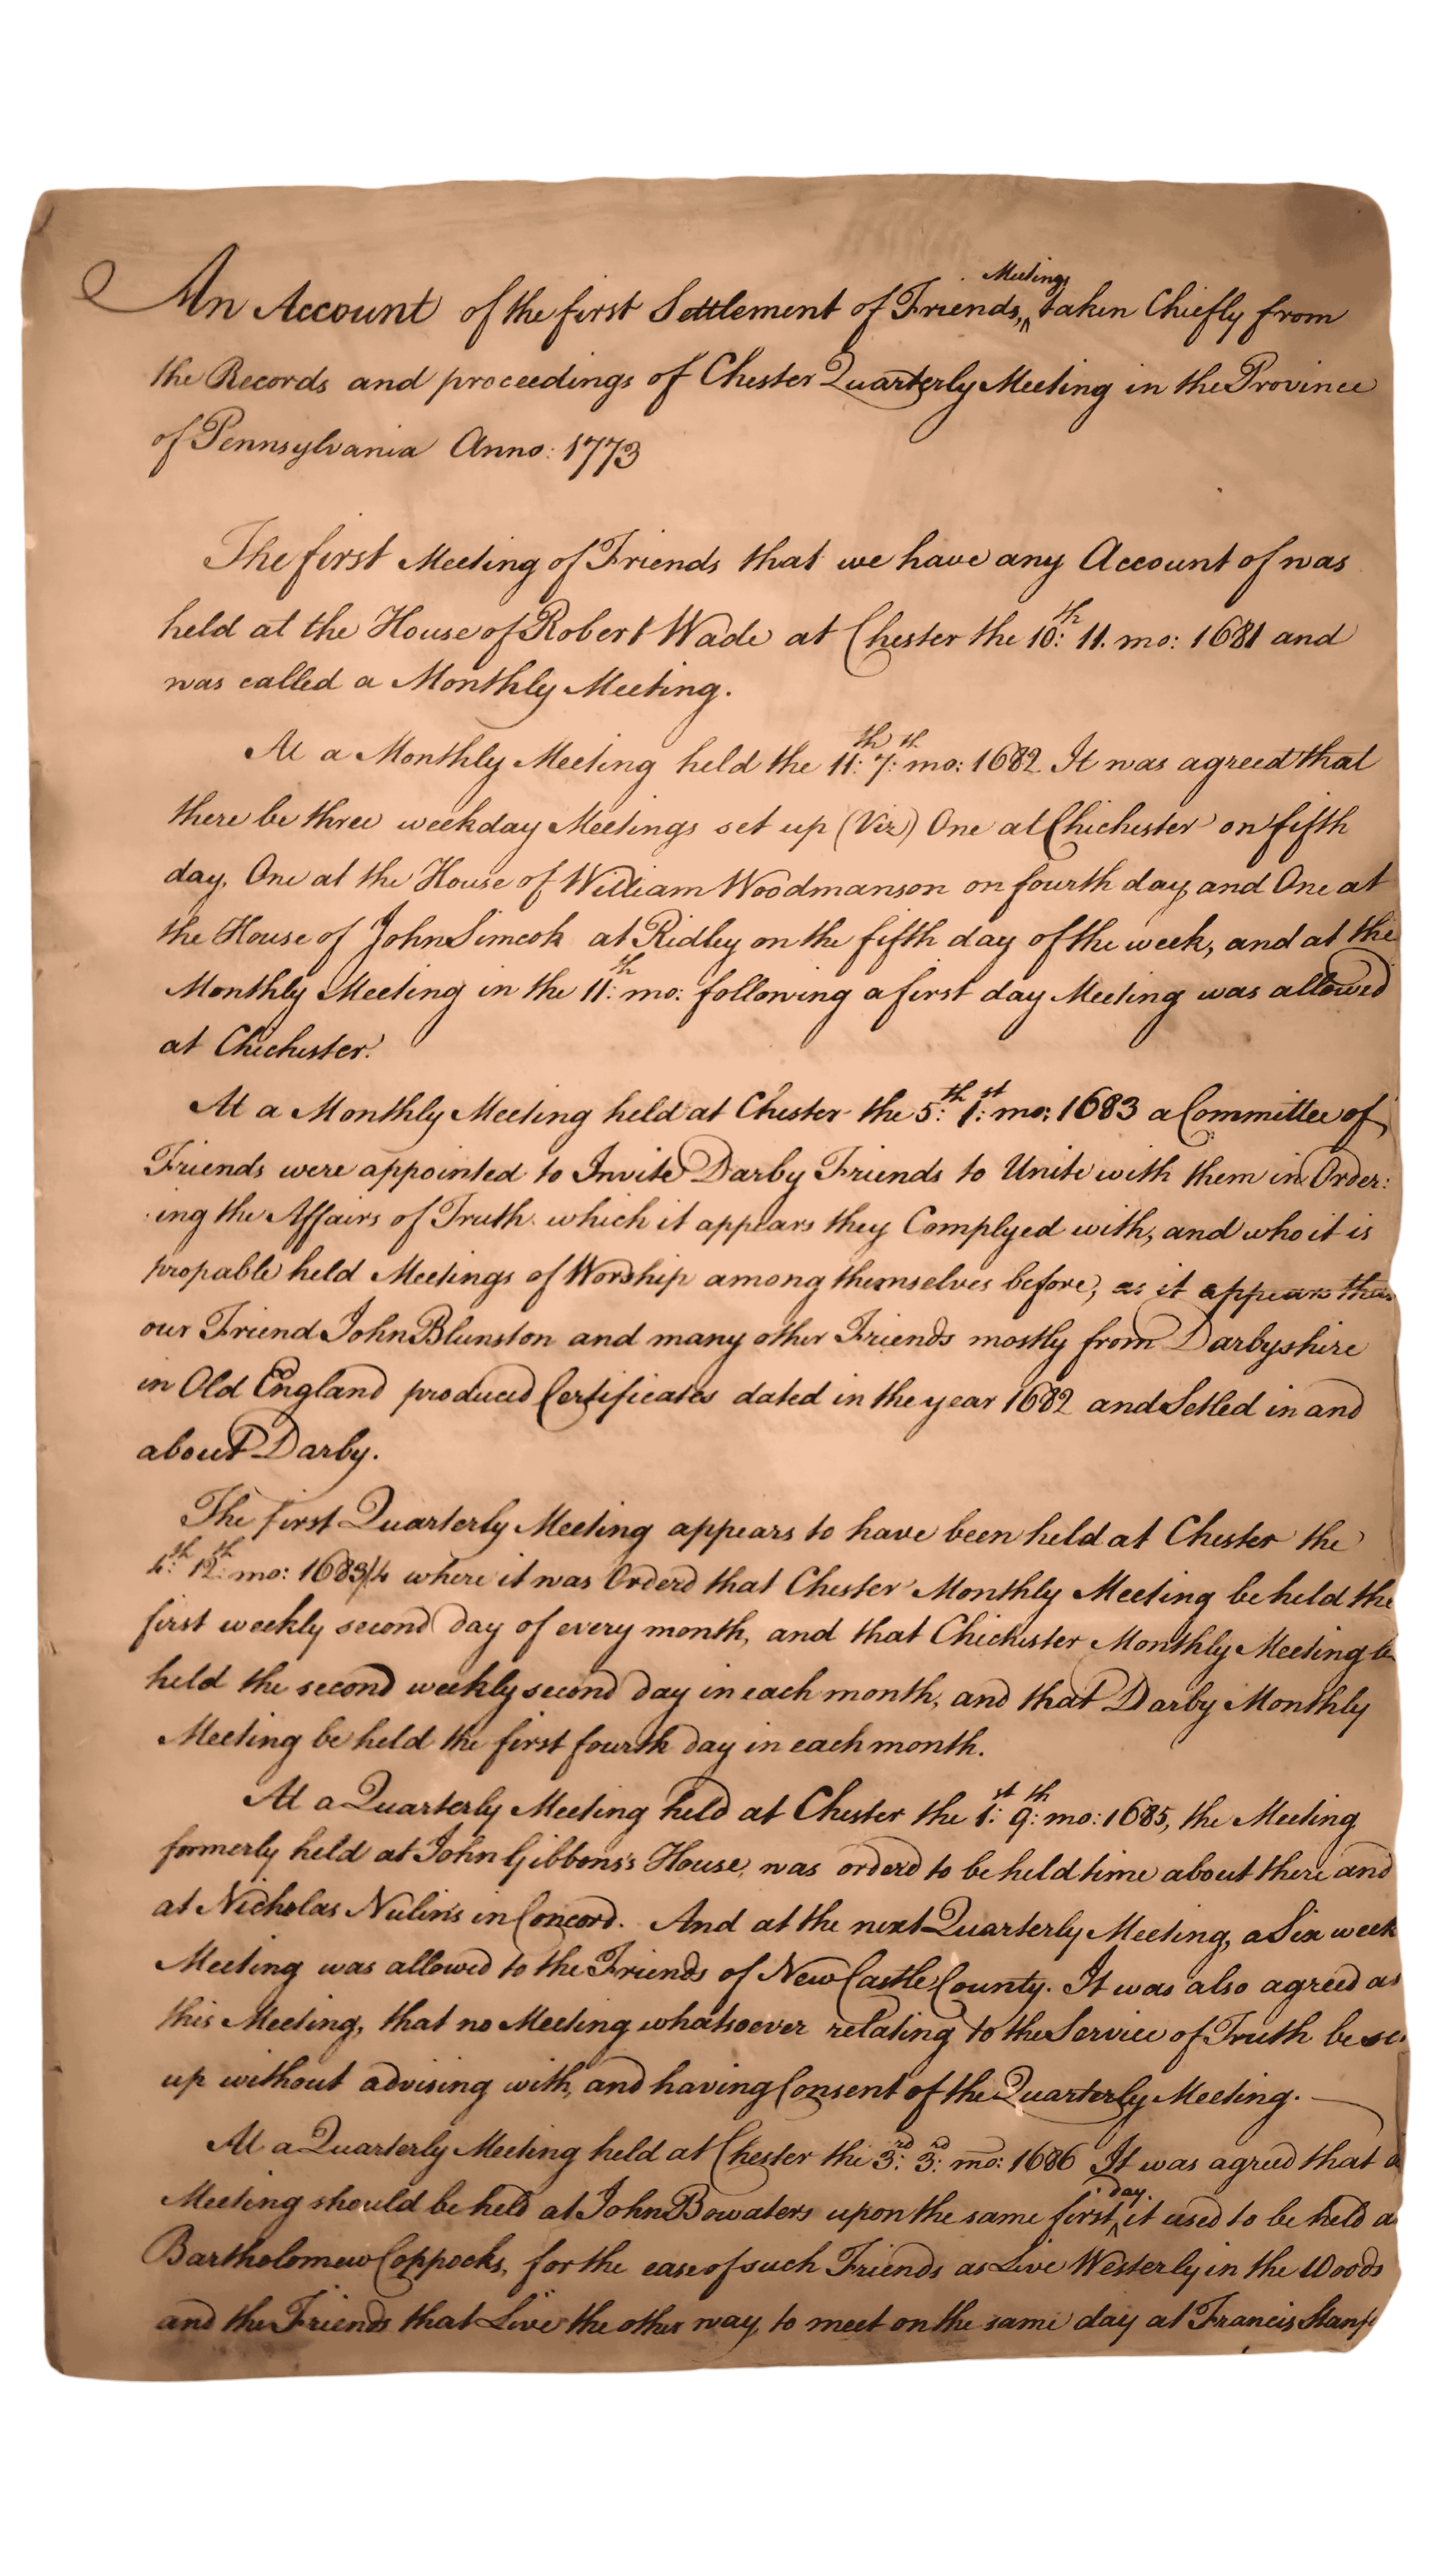 An Account of the first Settlement of Friends, Meetings taken Chiefly from
the Records and proceedings of Chester Quarterly Meeting in the Province
of Pennsylvania Anno: 1773
The first Meeting of Friends that we have any Account of was
held at the House of Robert Wade at Chester the 10:th 11. mo: 1681 and
was called a Monthly Meeting.
At a Monthly Meeting held the 11:th 7:th mo: 1682. It was agreed that
there be three weekday Meetings set up (Viz) One at Chichester on fifth
day, One at the House of William Woodmanson on fourth day, and One at
the House of John Simcok at Ridley on the fifth day of the week, and at the
Monthly Meeting in the 11:th mo: following a first day Meeting was allowed
at Chichester.
At a Monthly Meeting held at Chester the 5:th 1:st mo: 1683 a Committee of
Friends were appointed to Invite Darby Friends to Unite with them in Order:
ing the Affairs of Truth which it appears they Complyed with, and who it is
propable held Meetings of Worship among themselves before, as it appears
our Friend John Blunston and many other Friends mostly from Darbyshire
in Old England produced Certificates dated in the year 1682 and Setled in and
about Darby.
The first Quarterly Meeting appears to have been held at Chester the
4:th 12:th mo: 1683/4 where it was Orderd that Chester Monthly Meeting be held the
first weekly second day of every month, and that Chichester Monthly Meeting
held the second weekly second day in each month, and that Darby Monthly
Meeting be held the first fourth day in each month.
At a Quarterly Meeting held at Chester the 1:st 9:th mo: 1685, the Meeting
formerly held at John Gibbons's House, was orderd to be held time about there and
at Nicholas Nulin's in Concord. And at the next Quarterly Meeting, a Six week
Meeting was allowed to the Friends of New Castle County. It was also agreed
this Meeting, that no Meeting whatsoever relating to the Service of Truth be
up without advising with, and having Consent of the Quarterly Meeting.
At a Quarterly Meeting held at Chester the 3:rd 3:rd mo: 1686 It was agreed that
Meeting should be held at John Bowaters upon the same first day it used to be held
Bartholomew Coppocks, for the ease of such Friends as Live Westerly in the Woods
and the Friends that Live the other way, to meet on the same day at Francis